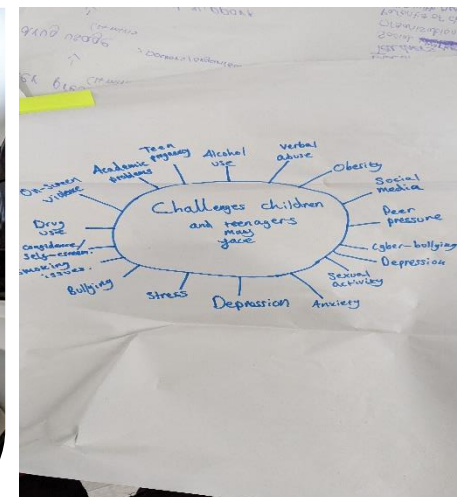 Challenges children
and teenagers
may
face
Alcohol
use
verbal
abuse
Obesity
Social
media
Peer
pressure
Cyber-bullying
Depression
Sexual
activity
Anxiety
Depression
Stress
Bullying
smoking
issues.
Confidence/
self-esteem.
Drug
use
On-screen
violence
Academic
problems
Teen
pregnancy